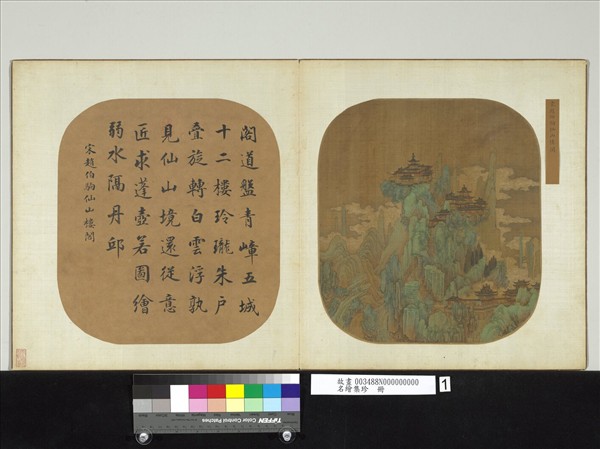 閣道盤青嶂五城
十二樓玲瓏朱戶
疊旋轉白雲浮孰
見仙山境還從意
匠求蓬壺若圖繪
弱水隔丹邱
宋趙伯駒仙山樓閣
故畫 003488N000000000
名繪集珍 冊
1
TIFFEN Color Control Patches